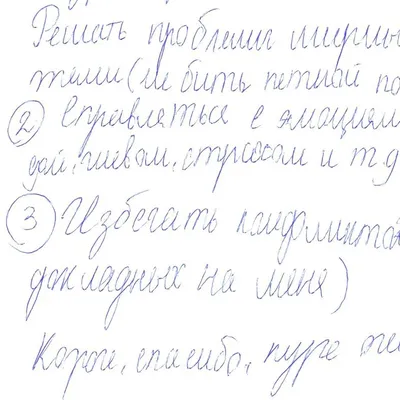 Решать проблемы мирны
(не бить
② Справляться с эмоциям
гневом, стрессом и т.д
③ Избегать конфликтов
докладных на меня)
Короче, спасибо, курс